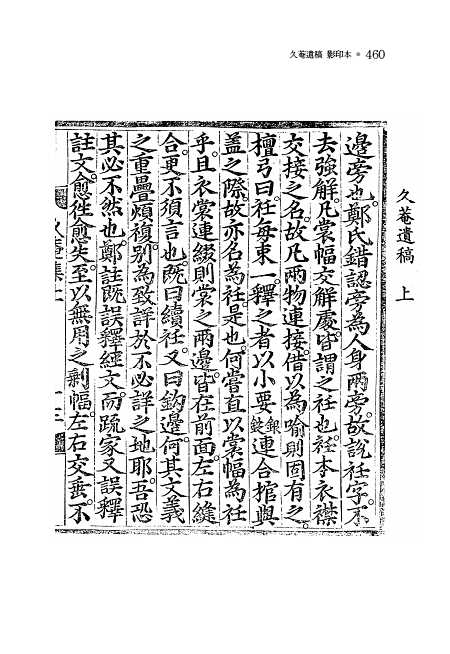 久菴遺稿 影印本 ● 460
久菴遺稿 上
邊旁也。鄭氏錯認旁為人身兩旁。故說衽字。不
去強解。凡裳幅交解處。皆謂之衽也。衽本衣襟
交接之名。故凡兩物連接。借以為喻則固有之。
檀弓曰。衽每束一。釋之者以小要 銀錠 連合棺與
蓋之際。故亦名為衽是也。何嘗直以裳幅為衽
乎。且衣裳連綴則裳之兩邊。皆在前面左右縫
合。更不須言也。旣曰續衽。又曰鉤邊。何其文義
之重疊煩複。別為致詳於不必詳之地耶。吾恐
其必不然也。鄭註旣誤釋經文。而疏家又誤釋
註文。愈徃愈失。至以無用之剩幅。左右交垂。不
久菴集上
十三